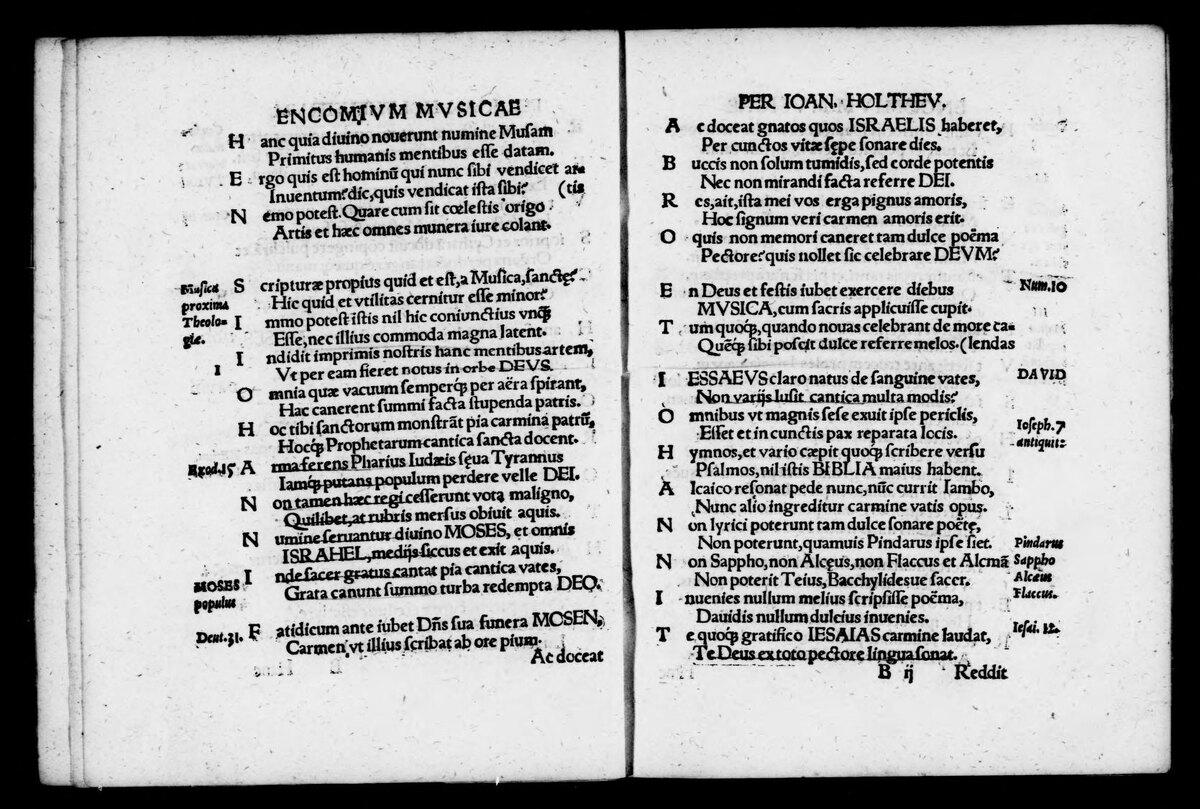 ENCOMIVM MVSICAE
H anc quia diuino nouerunt numine Musam
Primitus humanis mentibus esse datam.
E rgo quis est hominū qui nunc sibi vendicet ar-
Inuentum? dic, quis vendicat ista sibi? (tis
N emo potest. Quare cum sit cœlestis origo
Artis et hæc omnes munera iure colant.
Musica proxima Theologię.
S cripturæ propius quid et est, a Musica, sanctę?
Hic quid et vtilitas cernitur esse minor?
I mmo potest istis nil hic coniunctius vnq̃
Esse, nec illius commoda magna latent.
1
I ndidit imprimis nostris hanc mentibus artem,
Vt per eam fieret notus in orbe DEVS.
O mnia quæ vacuum semperq; per aëra spirant,
Hac canerent summi facta stupenda patris.
H oc tibi sanctorum monstrāt pia carmina patrū,
Hocq; Prophetarum cantica sancta docent.
Exod. 15
A rma ferens Pharius Iudæis sęua Tyrannus
Iamq; putans populum perdere velle DEI.
N on tamen hæc regi cesserunt vota maligno,
Quilibet, at rubris mersus obiuit aquis.
N umine seruantur diuino MOSES, et omnis
ISRAHEL, medijs siccus et exit aquis.
MOSES populus
I nde sacer gratus cantat pia cantica vates,
Grata canunt summo turba redempta DEO.
Deut. 31.
F atidicum ante iubet Dñs sua funera MOSEN,
Carmen vt illius scribat ab ore pium.
Ac doceat
PER IOAN. HOLTHEV.
A c doceat gnatos quos ISRAELIS haberet,
Per cunctos vitæ sępe sonare dies.
B uccis non solum tumidis, sed corde potentis
Nec non mirandi facta referre DEI.
R es, ait, ista mei vos erga pignus amoris,
Hoc signum veri carmen amoris erit.
O quis non memori caneret tam dulce poëma
Pectore? quis nollet sic celebrare DEVM?
Num. 10
E n Deus et festis iubet exercere diebus
MVSICA, cum sacris applicuisse cupit.
T um quoq;, quando nouas celebrant de more ca-
Quęq; sibi poscit dulce referre melos. (lendas
DAVID
I ESSAEVS claro natus de sanguine vates,
Non varijs lusit cantica multa modis?
O mnibus vt magnis sese exuit ipse periclis,
Esset et in cunctis pax reparata locis.
Ioseph. 7 antiquit:
H ymnos, et vario cæpit quoq; scribere versu
Psalmos, nil istis BIBLIA maius habent.
A lcaico resonat pede nunc, nūc currit Iambo,
Nunc alio ingreditur carmine vatis opus.
N on lyrici poterunt tam dulce sonare poëtę,
Non poterunt, quamuis Pindarus ipse siet.
Pindarus
N on Sappho, non Alcęus, non Flaccus et Alcmā
Sappho
Non poterit Teius, Bacchylidesue sacer.
Alcæus
I nuenies nullum melius scripsisse poëma,
Flaccus.
Dauidis nullum dulcius inuenies.
T e quoq; gratifico IESAIAS carmine laudat,
Iesai. 12.
Te Deus ex toto pectore lingua sonat.
B ij Reddit